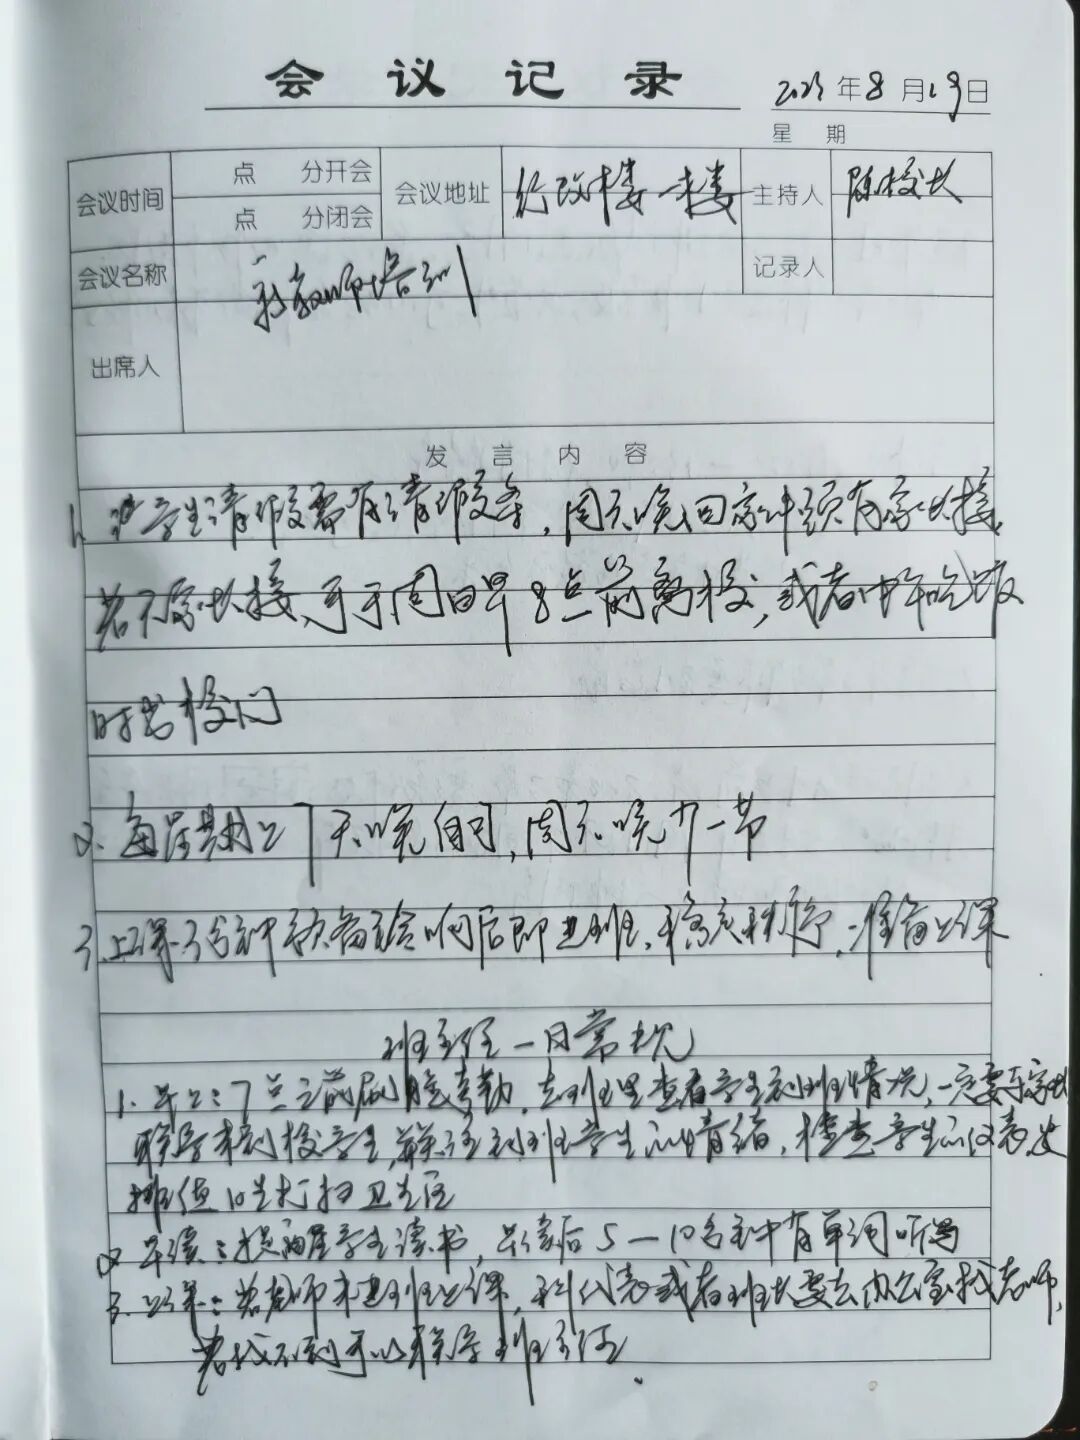 会议记录
2023年8月19日
星期
会议时间 点 分开会 会议地址 行政楼一楼 主持人 陈校长
点 分闭会
会议名称 新教师培训 记录人
出席人
发言内容
1. 学生请假需有请假条，周六晚回家必须有家长接，
若不家长接，可于周日早8点前离校，或者中午吃饭
时出校门
2. 每星期上7天晚自习，周六晚加一节
3. 上课3分钟预备铃响后即进班，稳定秩序，准备上课
班主任一日常规
1. 早上：7点之前刷脸考勤，去班里查看学生到班情况，一定要与家长
联系未到校学生，关注到班学生的情绪，检查学生的仪表，安
排值日生打扫卫生区
2 早读：提醒学生读书，早读后5—10分钟有单词听写
3. 上课：若老师未进班上课，科代表或者班长要去办公室找老师，
若找不到可以联系班主任.